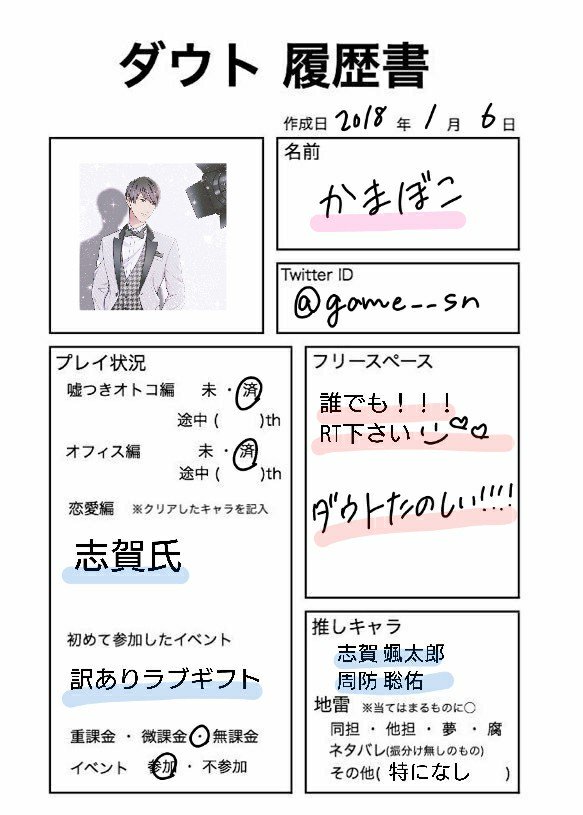 ダウト 履歴書
作成日 2018 年 1 月 6 日
名前
かまぼこ
Twitter ID
@game__sn
プレイ状況
嘘つきオトコ編 未 ・ 済
途中 ( )th
オフィス編 未 ・ 済
途中 ( )th
恋愛編 ※クリアしたキャラを記入
志賀氏
初めて参加したイベント
訳ありラブギフト
重課金 ・ 微課金 ・ 無課金
イベント 参加 ・ 不参加
フリースペース
誰でも！！！
RT下さい
ダウトたのしい!!!!
推しキャラ
志賀 颯太郎
周防 聡佑
地雷 ※当てはまるものに○
同担 ・ 他担 ・ 夢 ・ 腐
ネタバレ(振分け無しのもの)
その他( 特になし )